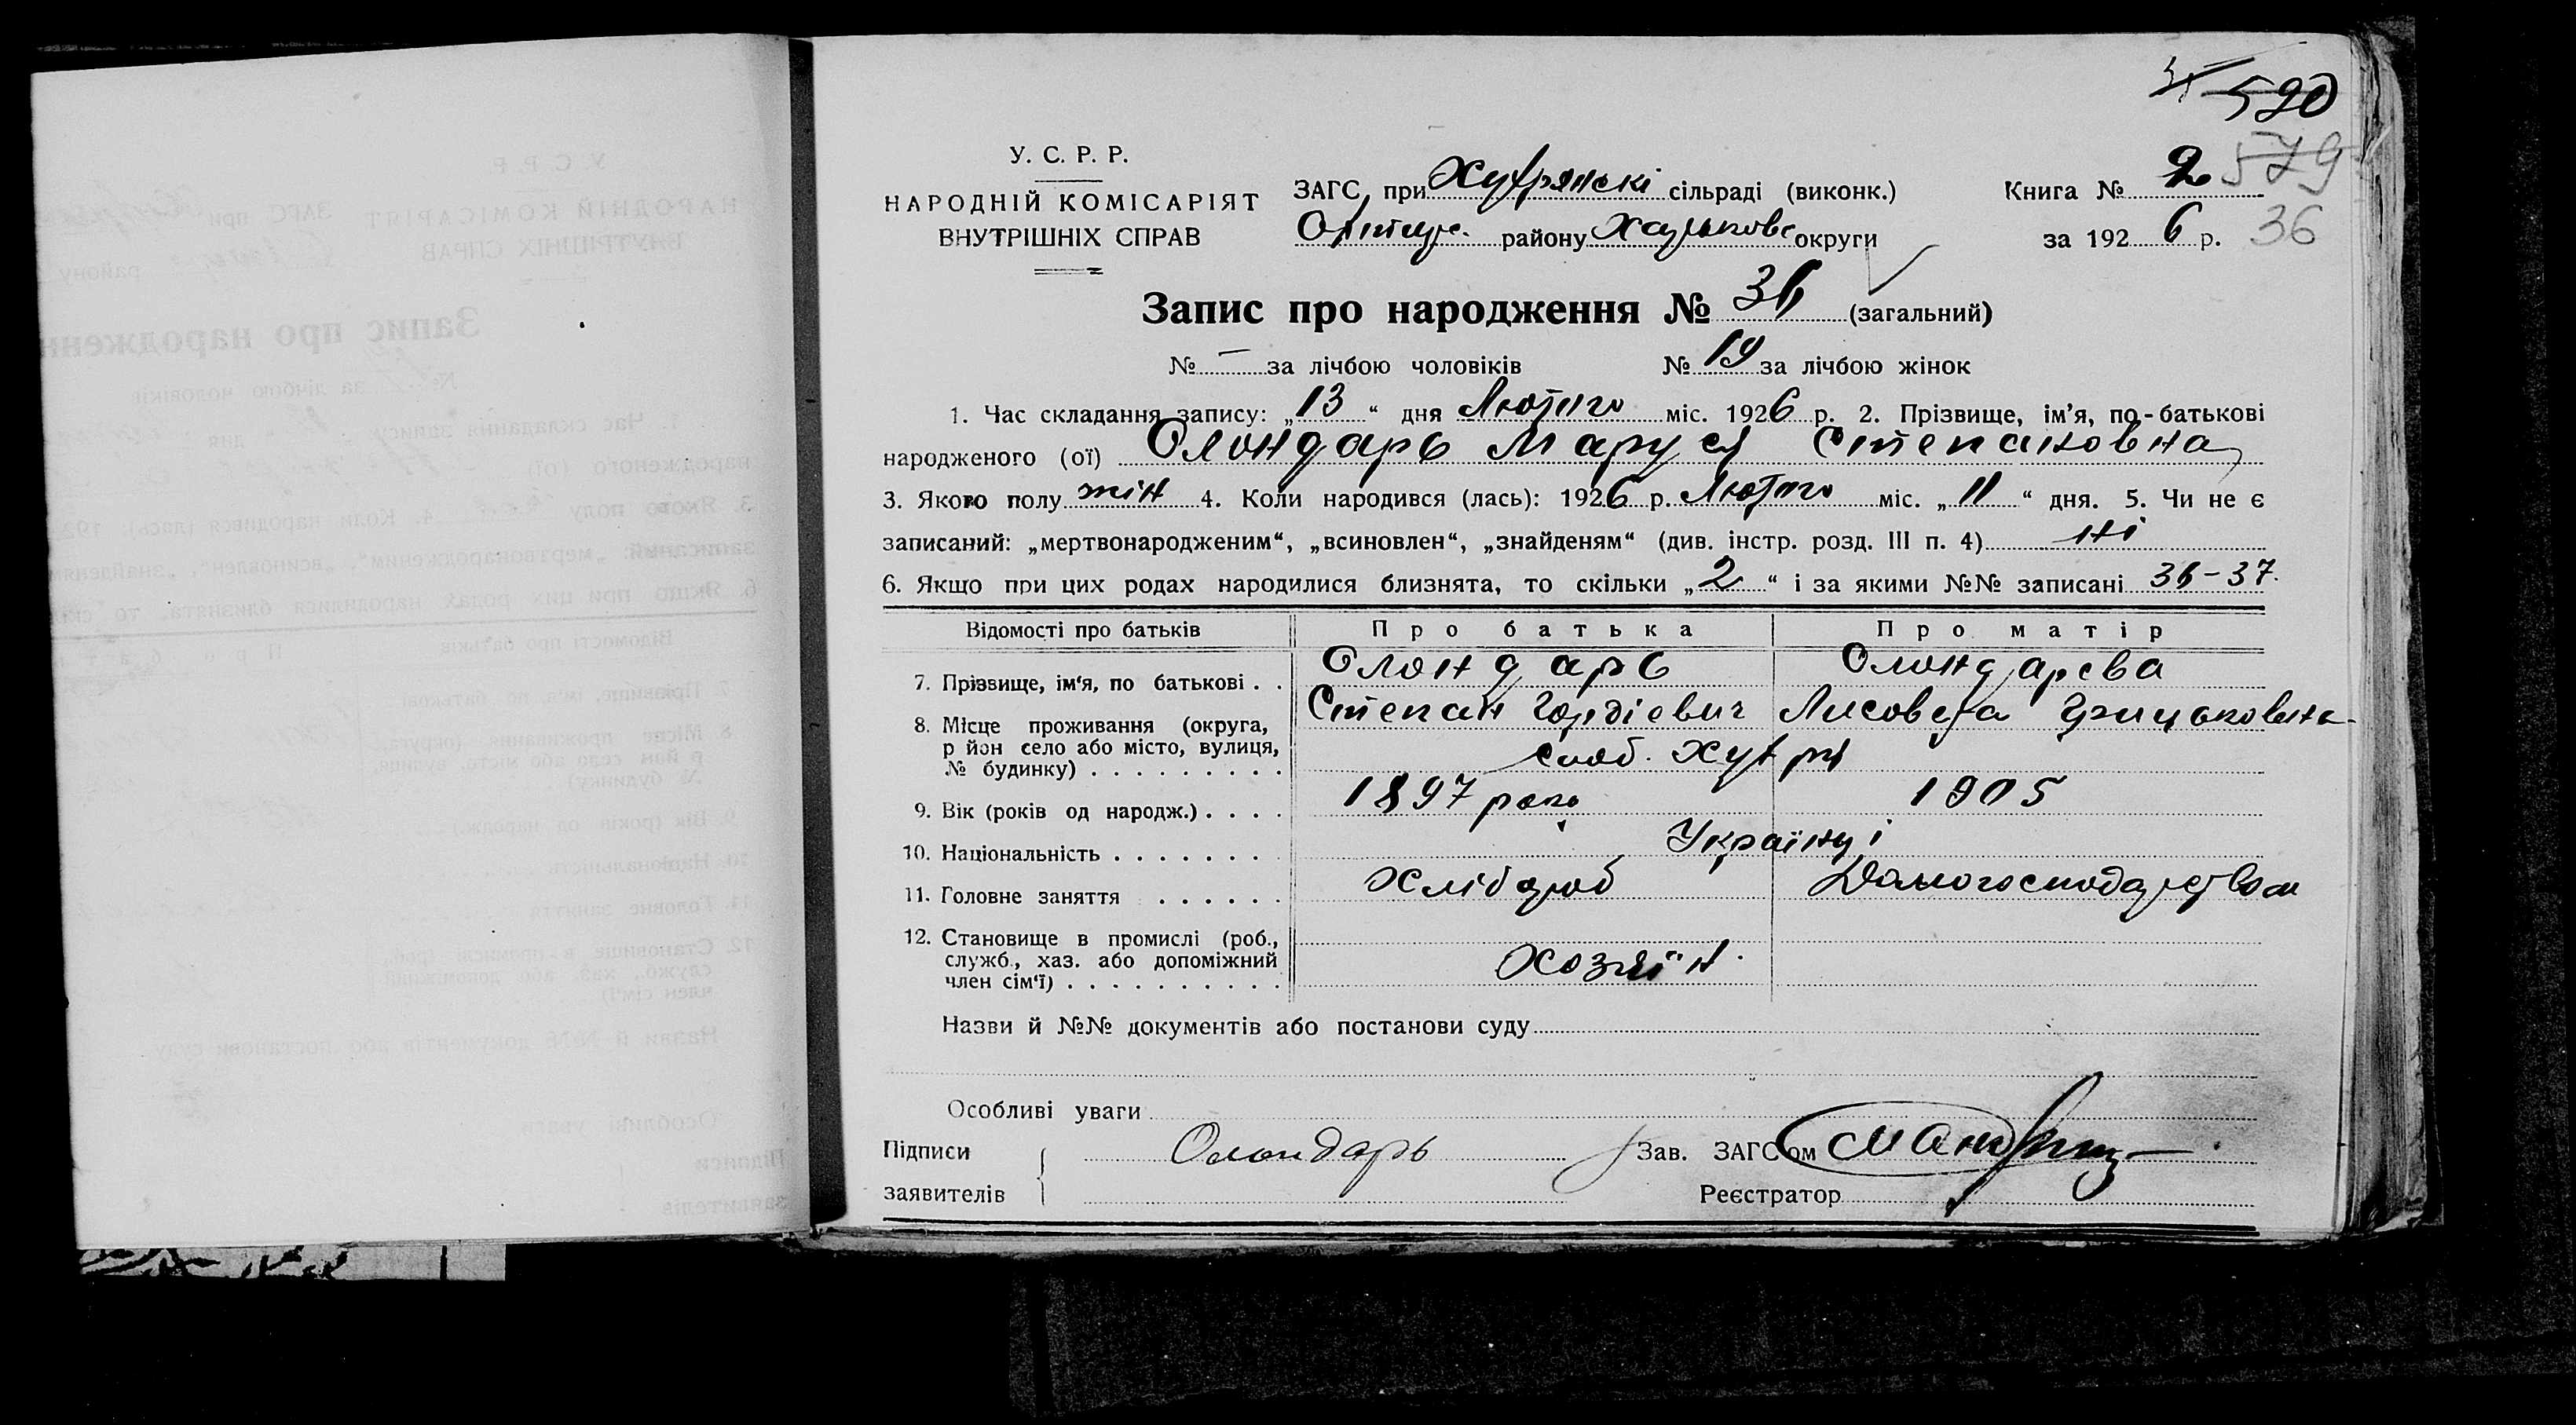 520
У. С. Р. Р.
НАРОДНІЙ КОМІСАРІЯТ
ВНУТРІШНІХ СПРАВ
ЗАГС при сільраді (виконк.)
району округи
Книга № 2 579
за 1926 р. 36
Запис про народження № 36 (загальний)
№ — за лічбою чоловіків № 19 за лічбою жінок
1. Час складання запису: „13“ дня Лютого міс. 1926 р. 2. Прізвище, ім'я, по-батькові
народженого (ої) Олондарь Маруся Степановна
3. Якого полу жін 4. Коли народився (лась): 1926 р. Лютого міс. „11“ дня. 5. Чи не є
записаний: „мертвонародженим“, „всиновлен“, „знайденям“ (див. інстр. розд. III п. 4) ні
6. Якщо при цих родах народилися близнята, то скільки „2“ і за якими №№ записані 36-37.
Відомості про батьків Про батька Про матір
7. Прізвище, ім'я, по батькові . . Олондарь Олондарева
Степан Гордієвич Лисовета Грицьковна
8. Місце проживання (округа,
р йон село або місто, вулиця,
№ будинку) . . . . . . . . . слоб.
9. Вік (років од народж.) . . . . 1897 року 1905
10. Національність . . . . . . . Українці
11. Головне заняття . . . . . . Хлібороб Домогосподарством
12. Становище в промислі (роб.,
служб., хаз. або допоміжний
член сім'ї) . . . . . . . . . . Хозяїн.
Назви й №№ документів або постанови суду
Особливі уваги
Підписи Олондарь Зав. ЗАГСом
заявителів Реєстратор